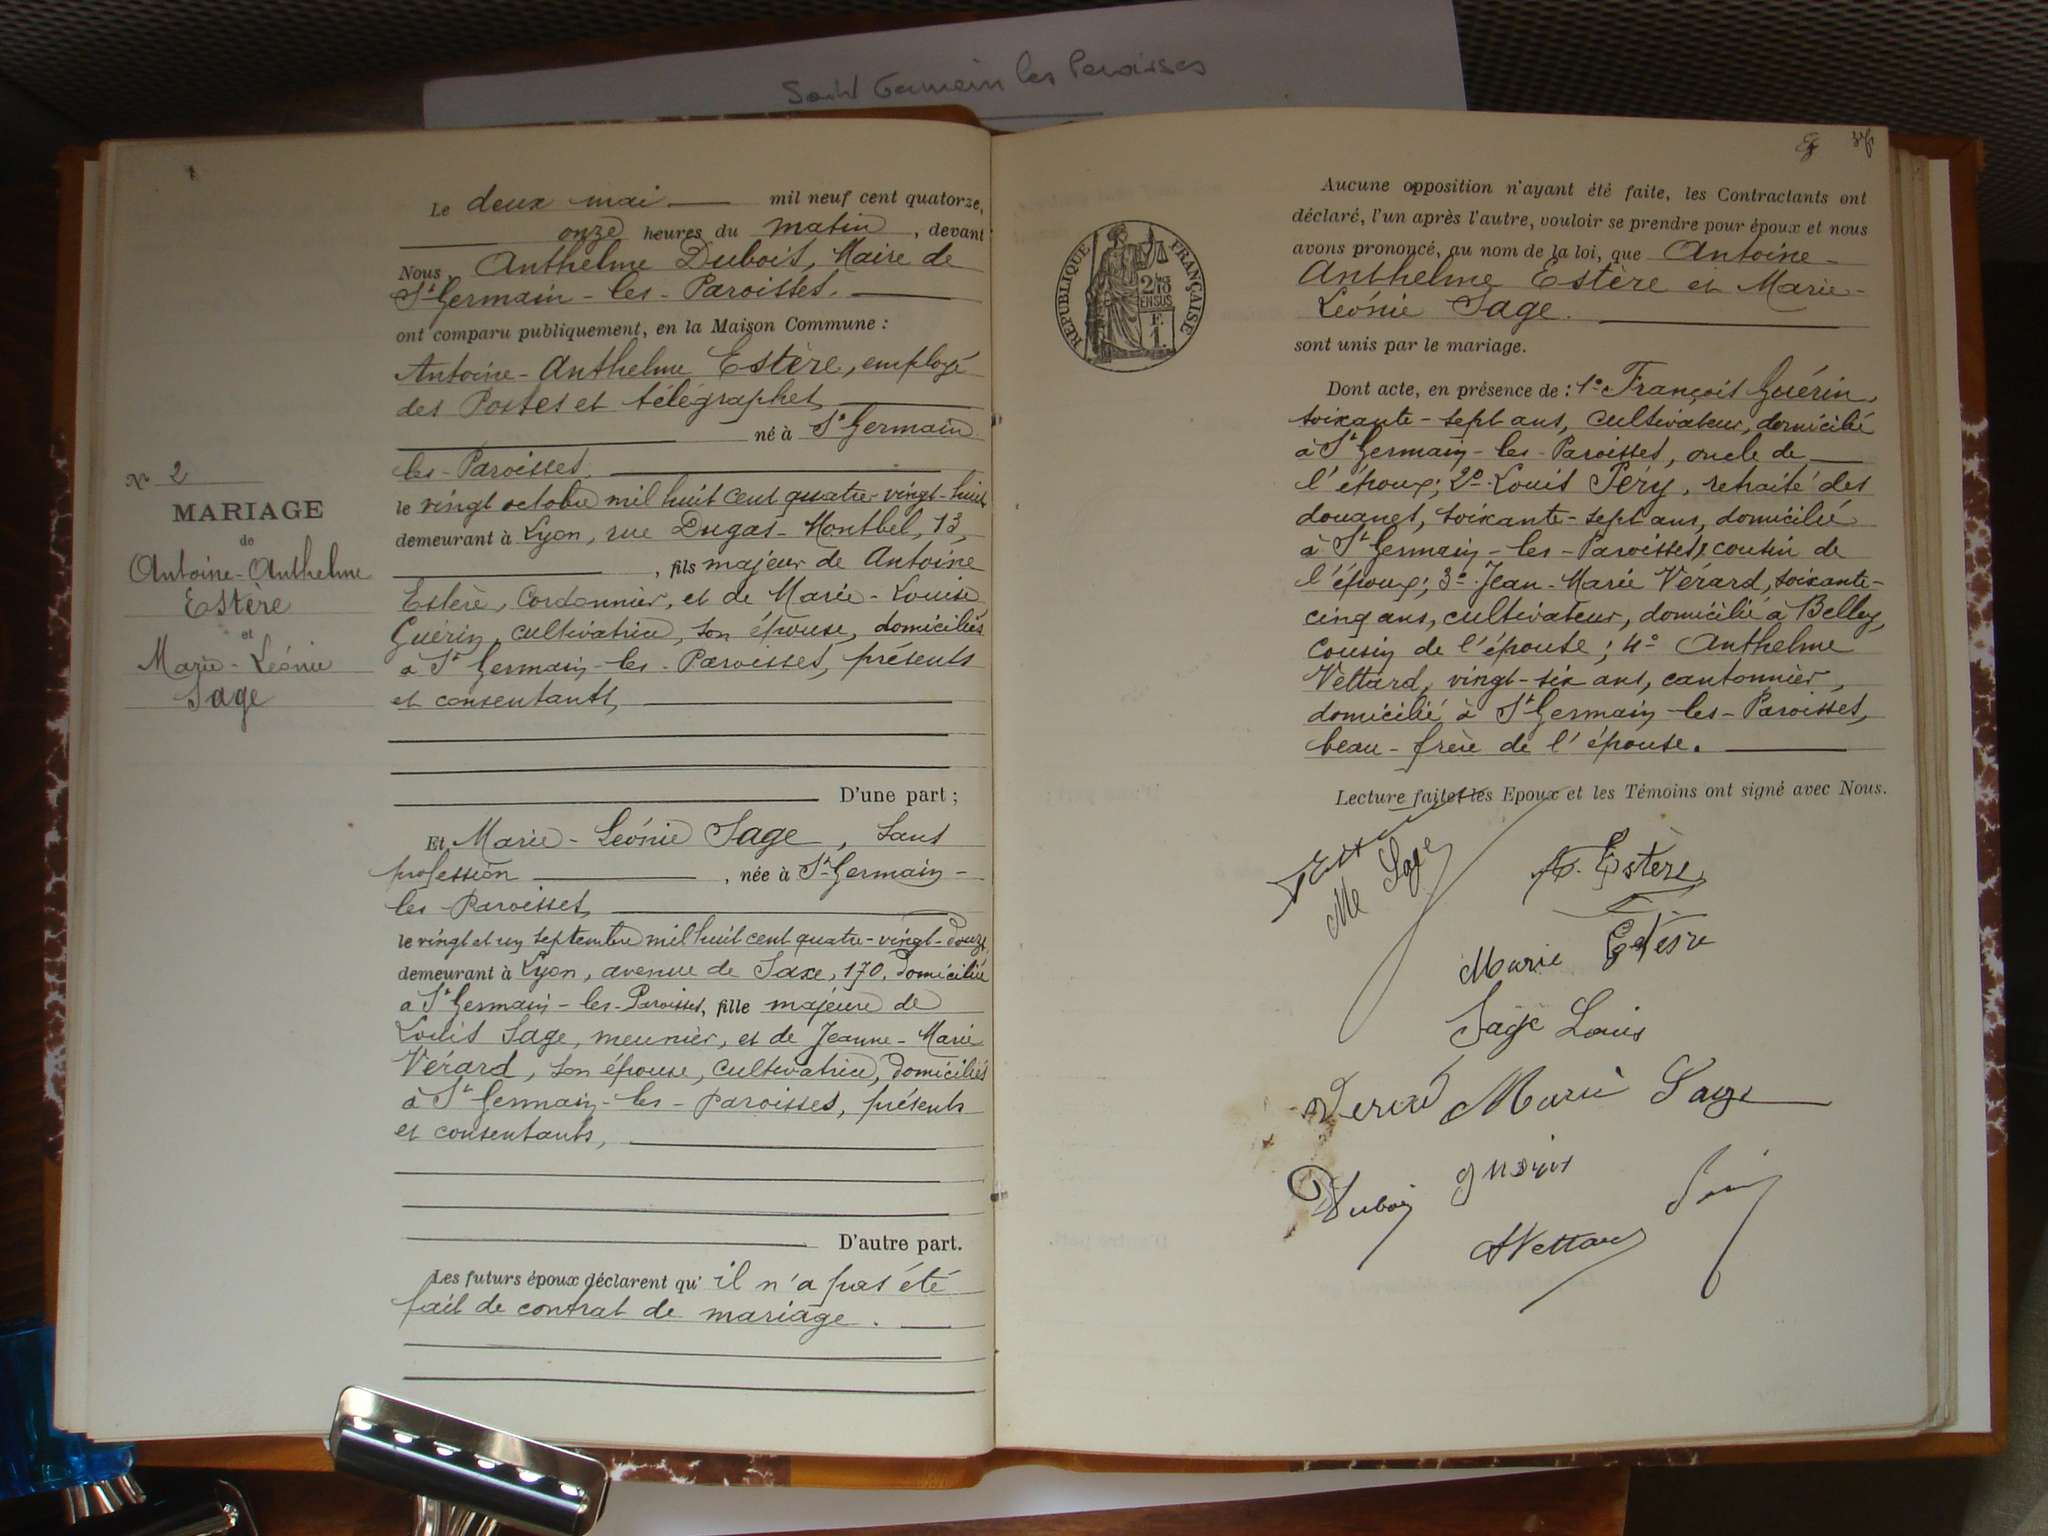 Saint Germain les Paroisses
Le deux mai mil neuf cent quatorze,
onze heures du matin, devant
Nous, Anthelme Dubois, Maire de
St Germain-les-Paroisses.
ont comparu publiquement, en la Maison Commune :
Antoine-Anthelme Estère, employé
des Postes et télégraphes
né à St Germain
les-Paroisses.
le vingt octobre mil huit cent quatre-vingt-huit
demeurant à Lyon, rue Dugas-Montbel, 13,
, fils majeur de Antoine
Estère, Cordonnier, et de Marie-Louise
Guérin, cultivatrice, son épouse, domiciliés
à St Germain-les-Paroisses, présents
et consentants,
D'une part ;
Et Marie-Léonie Sage, sans
profession, née à St Germain-
les-Paroisses,
le vingt et un septembre mil huit cent quatre-vingt-douze
demeurant à Lyon, avenue de Saxe, 170, domiciliée
à St Germain-les-Paroisses, fille majeure de
Louis Sage, meunier, et de Jeanne-Marie
Vérard, son épouse, cultivatrice, domiciliés
à St Germain-les-Paroisses, présents
et consentants,
D'autre part.
Les futurs époux déclarent qu'il n'a pas été
fait de contrat de mariage.
No 2
MARIAGE
de
Antoine-Anthelme
Estère
et
Marie-Léonie
Sage
RÉPUBLIQUE FRANÇAISE
2/10
EN SUS
F.
1.
Aucune opposition n'ayant été faite, les Contractants ont
déclaré, l'un après l'autre, vouloir se prendre pour époux et nous
avons prononcé, au nom de la loi, que Antoine-
Anthelme Estère et Marie-
Léonie Sage.
sont unis par le mariage.
Dont acte, en présence de : 1º François Guérin,
soixante-sept ans, cultivateur, domicilié
à St Germain-les-Paroisses, oncle de
l'époux; 2º Louis Péry, retraité des
douanes, soixante-sept ans, domicilié
à St Germain-les-Paroisses, cousin de
l'époux; 3º Jean-Marie Vérard, soixante-
cinq ans, cultivateur, domicilié à Belley,
cousin de l'épouse; 4º Anthelme
Vettard, vingt-six ans, cantonnier,
domicilié à St Germain-les-Paroisses,
beau-frère de l'épouse.
Lecture faite, les Epoux et les Témoins ont signé avec Nous.
Me Sage
A. Estère
Marie Estère
Sage Louis
Verard Marie Sage
Dubois
AVettard